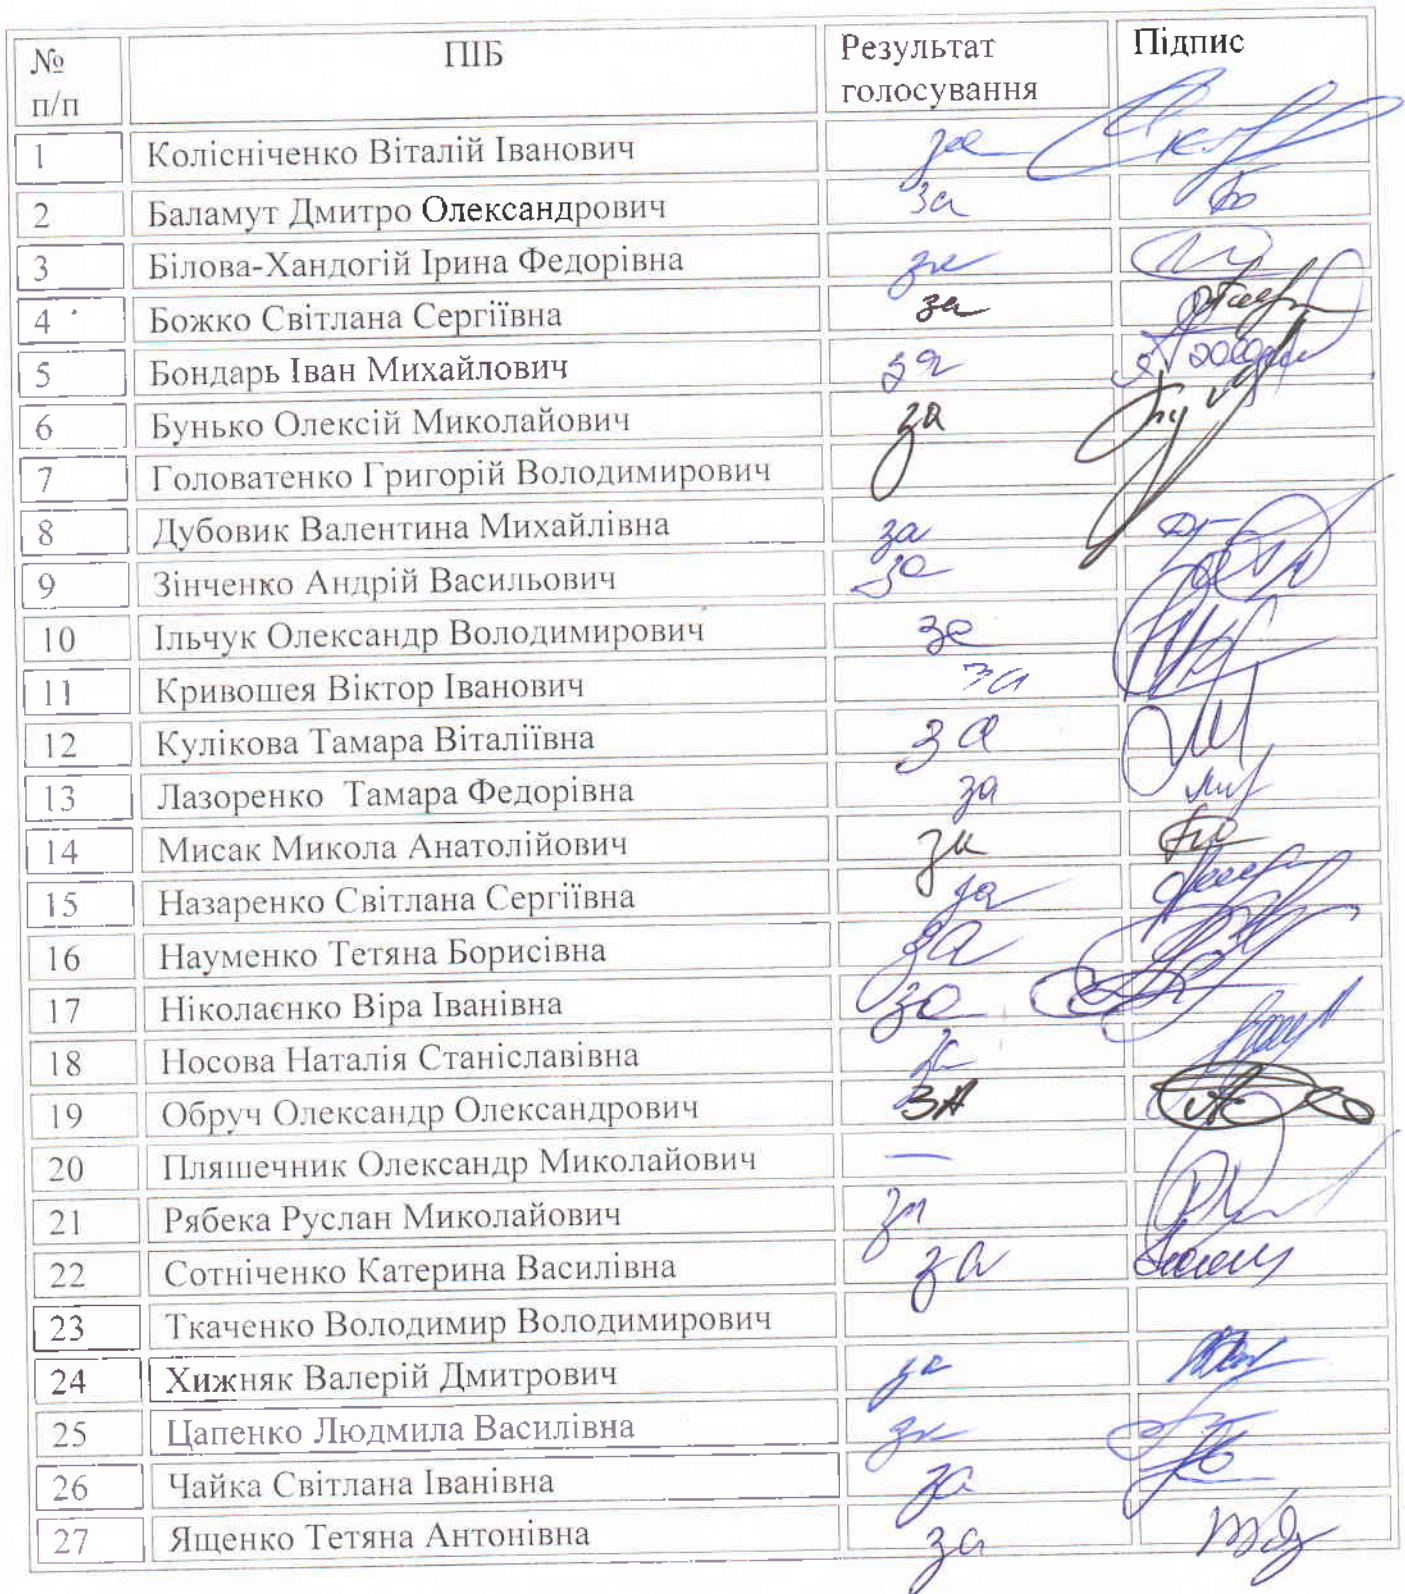 № п/п ПІБ Результат голосування Підпис
1 Колісніченко Віталій Іванович за
2 Баламут Дмитро Олександрович за
3 Білова-Хандогій Ірина Федорівна за
4 Божко Світлана Сергіївна за
5 Бондарь Іван Михайлович за
6 Бунько Олексій Миколайович за
7 Головатенко Григорій Володимирович
8 Дубовик Валентина Михайлівна за
9 Зінченко Андрій Васильович за
10 Ільчук Олександр Володимирович за
11 Кривошея Віктор Іванович за
12 Кулікова Тамара Віталіївна за
13 Лазоренко Тамара Федорівна за
14 Мисак Микола Анатолійович за
15 Назаренко Світлана Сергіївна за
16 Науменко Тетяна Борисівна за
17 Ніколаєнко Віра Іванівна за
18 Носова Наталія Станіславівна за
19 Обруч Олександр Олександрович за
20 Пляшечник Олександр Миколайович —
21 Рябека Руслан Миколайович за
22 Сотніченко Катерина Василівна за
23 Ткаченко Володимир Володимирович
24 Хижняк Валерій Дмитрович за
25 Цапенко Людмила Василівна за
26 Чайка Світлана Іванівна за
27 Ященко Тетяна Антонівна за